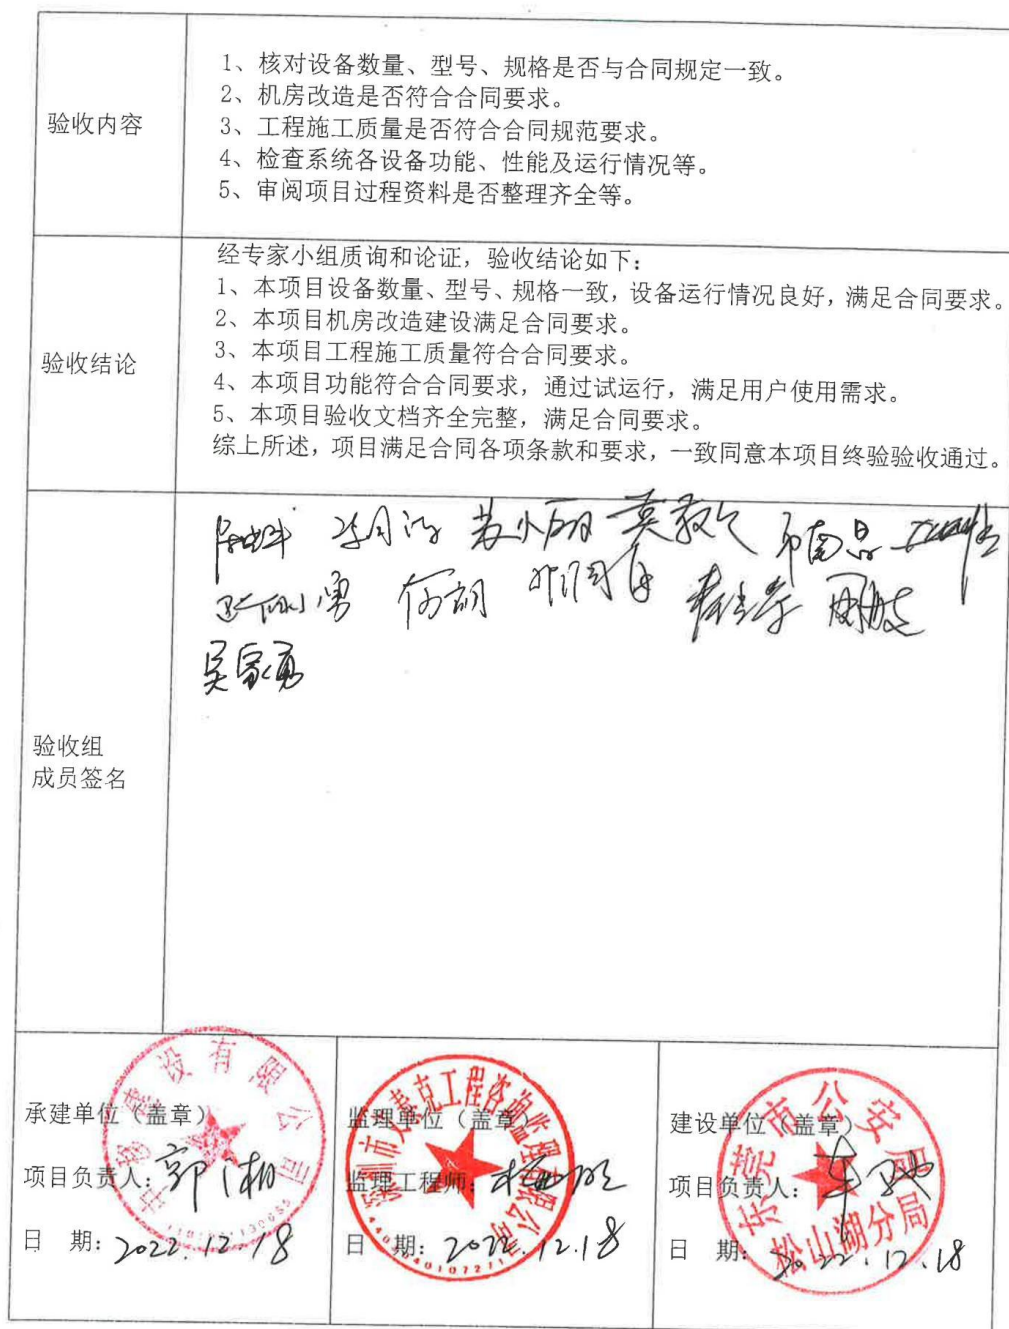 验收内容
1、核对设备数量、型号、规格是否与合同规定一致。
2、机房改造是否符合合同要求。
3、工程施工质量是否符合合同规范要求。
4、检查系统各设备功能、性能及运行情况等。
5、审阅项目过程资料是否整理齐全等。
验收结论
经专家小组质询和论证，验收结论如下：
1、本项目设备数量、型号、规格一致，设备运行情况良好，满足合同要求。
2、本项目机房改造建设满足合同要求。
3、本项目工程施工质量符合合同要求。
4、本项目功能符合合同要求，通过试运行，满足用户使用需求。
5、本项目验收文档齐全完整，满足合同要求。
综上所述，项目满足合同各项条款和要求，一致同意本项目终验验收通过。
验收组
成员签名
吴家勇
承建单位（盖章）
项目负责人：
日 期：2022.12.18
建设有限公司
监理单位（盖章）
监理工程师：
日 期：2022.12.18
工程咨询监理有限公司
建设单位（盖章）
项目负责人：
日 期：2022.12.18
东莞市公安局
松山湖分局